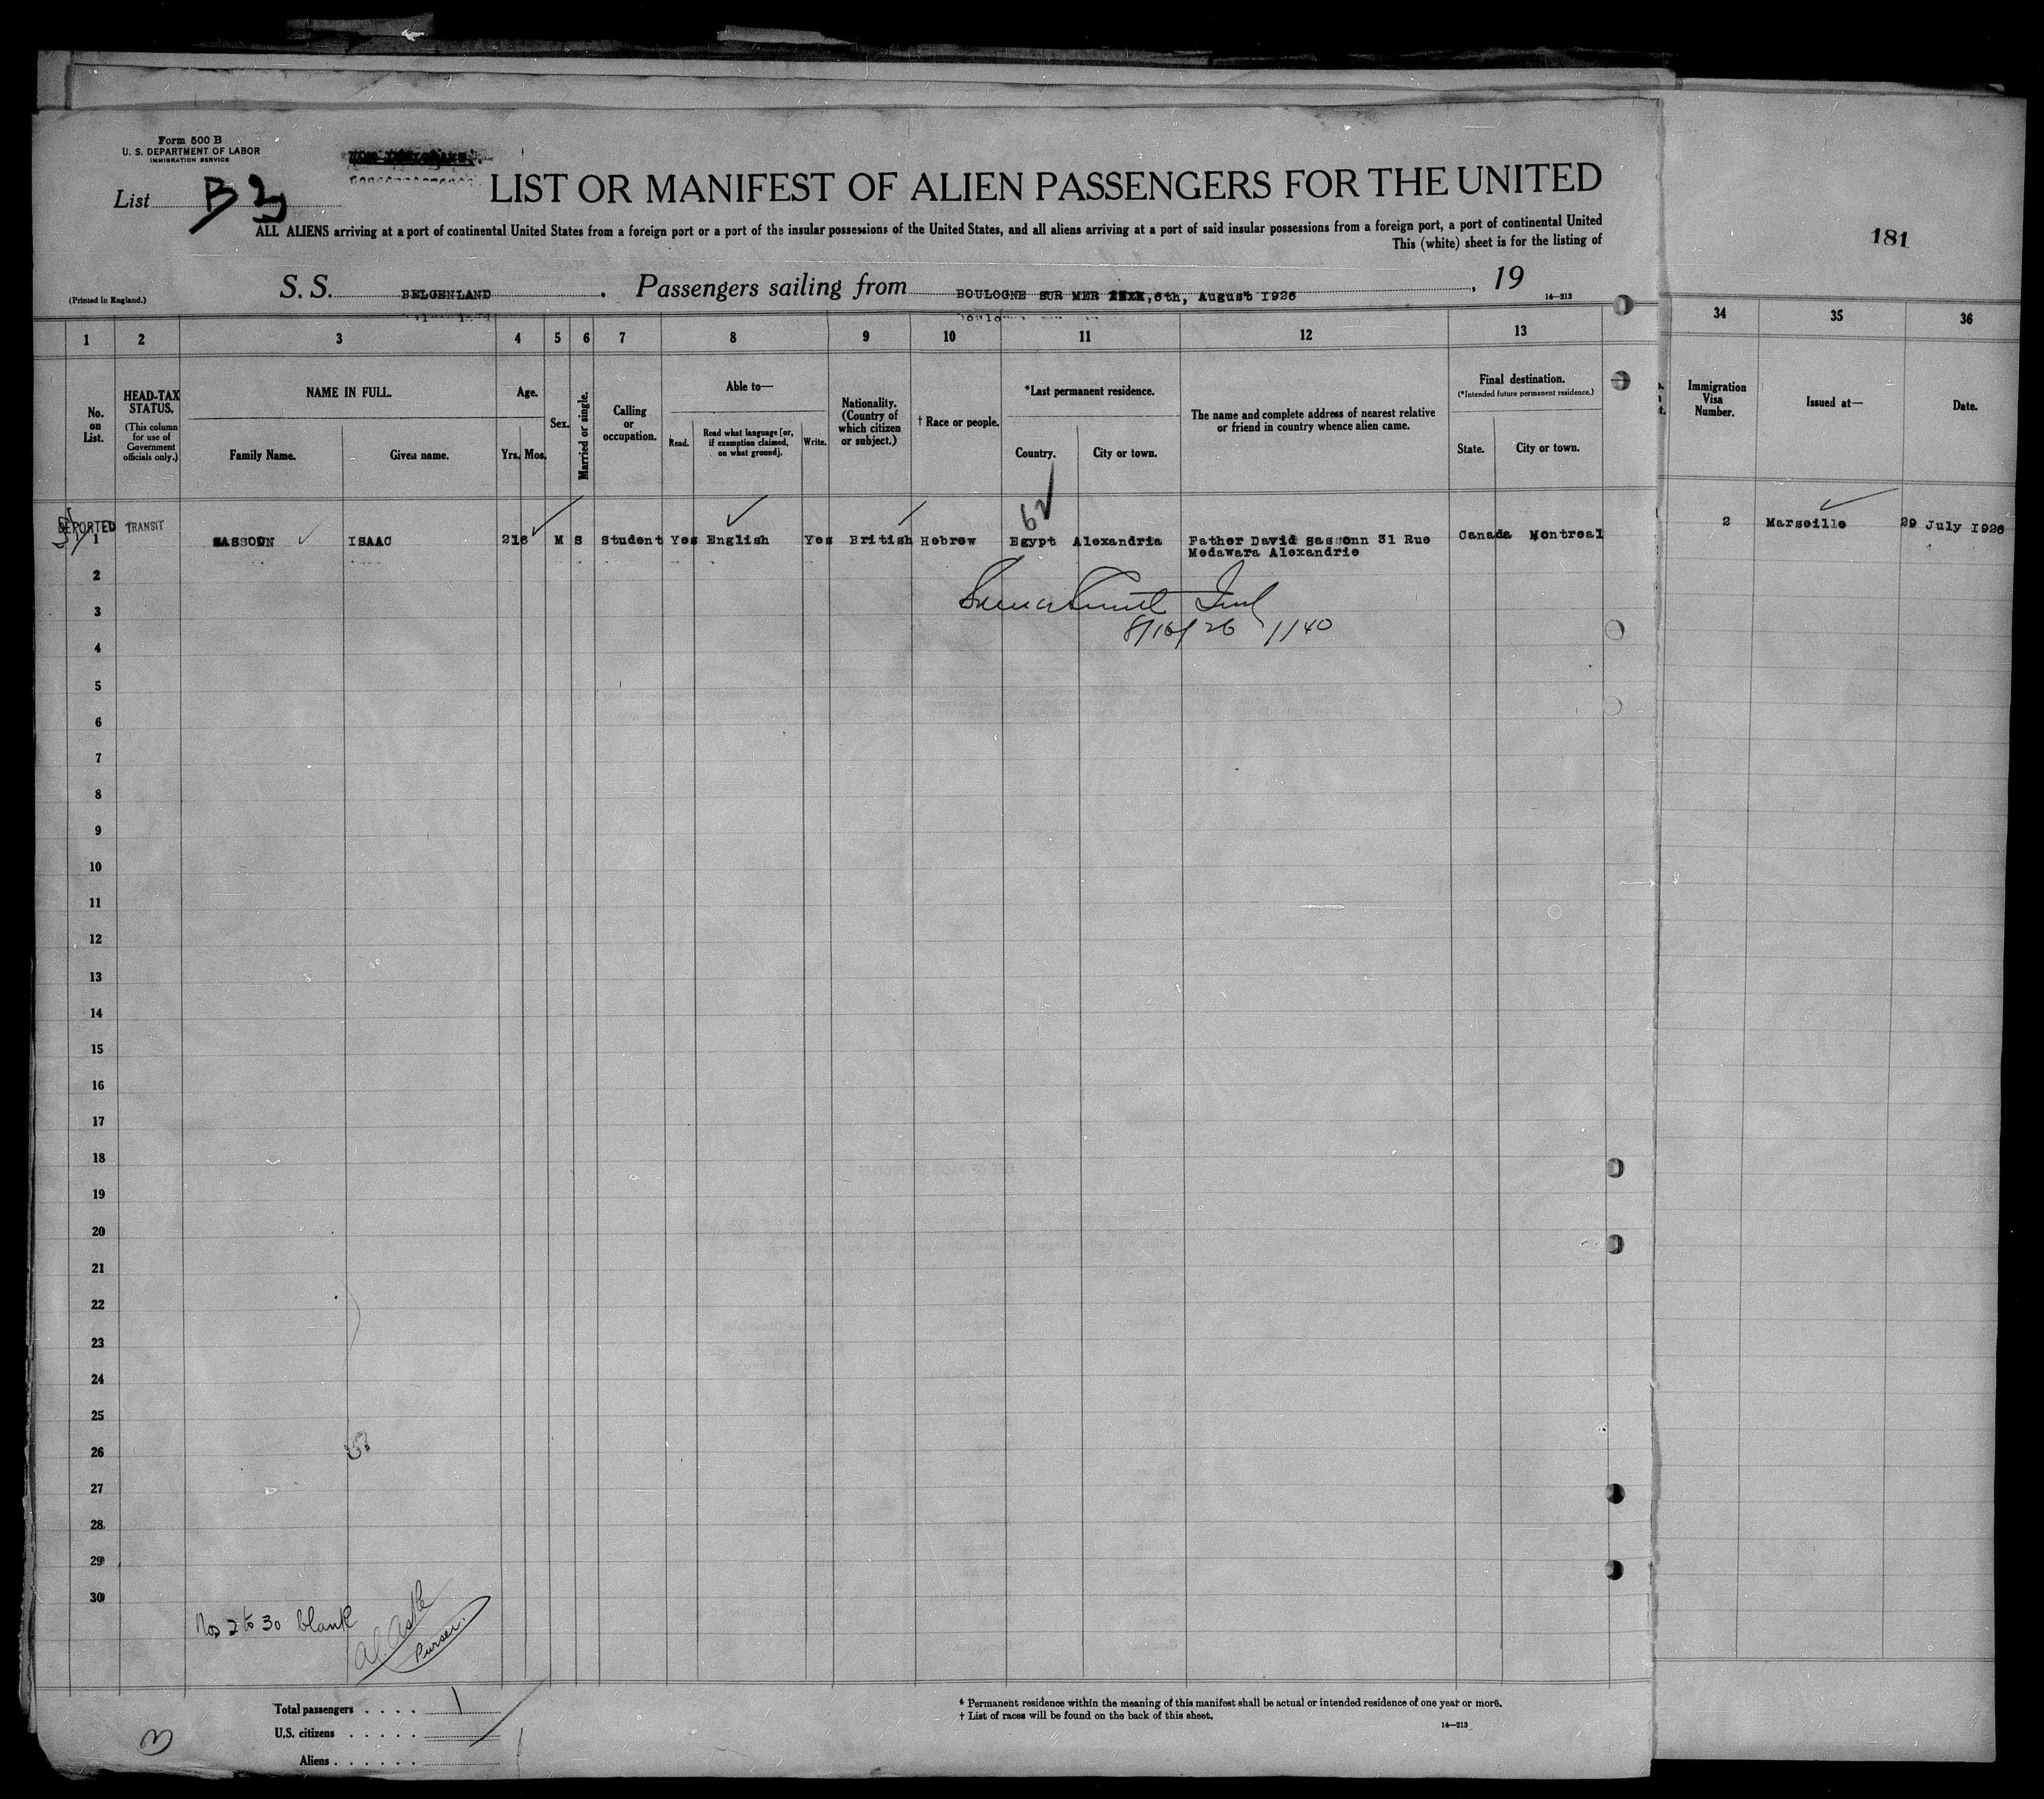 Form 500 B
U. S. DEPARTMENT OF LABOR
IMMIGRATION SERVICE
List B 3
LIST OR MANIFEST OF ALIEN PASSENGERS FOR THE UNITED
ALL ALIENS arriving at a port of continental United States from a foreign port or a port of the insular possessions of the United States, and all aliens arriving at a port of said insular possessions from a foreign port, a port of continental United
This (white) sheet is for the listing of
181
(Printed in England.)
S. S. BELGENLAND . Passengers sailing from BOULOGNE SUR MER , 6th, August 1926 , 19
14—213
1 2 3 4 5 6 7 8 9 10 11 12 13 34 35 36
No. on List.
HEAD-TAX STATUS.
(This column for use of Government officials only.)
NAME IN FULL.
Family Name. Given name.
Age.
Yrs. Mos.
Sex.
Married or single.
Calling or occupation.
Able to—
Read. Read what language [or, if exemption claimed, on what ground]. Write.
Nationality. (Country of which citizen or subject.)
† Race or people.
*Last permanent residence.
Country. City or town.
The name and complete address of nearest relative or friend in country whence alien came.
Final destination.
(*Intended future permanent residence.)
State. City or town.
Immigration Visa Number.
Issued at—
Date.
DEPORTED TRANSIT
62
1 SASSOON ISAAC 21 6 M S Student Yes English Yes British Hebrew Egypt Alexandria Father David Sassonn 31 Rue Canada Montreal 2 Marseille 29 July 1926
Medawara Alexandrie
2
3
8/16/26 1140
4
5
6
7
8
9
10
11
12
13
14
15
16
17
18
19
20
21
22
23
24
25
26
27
28
29
30
Nos 2 to 30 blank
Purser.
Total passengers . . . . 1
U.S. citizens . . . . .
Aliens . . . . . .
* Permanent residence within the meaning of this manifest shall be actual or intended residence of one year or more.
† List of races will be found on the back of this sheet.
14—213
3